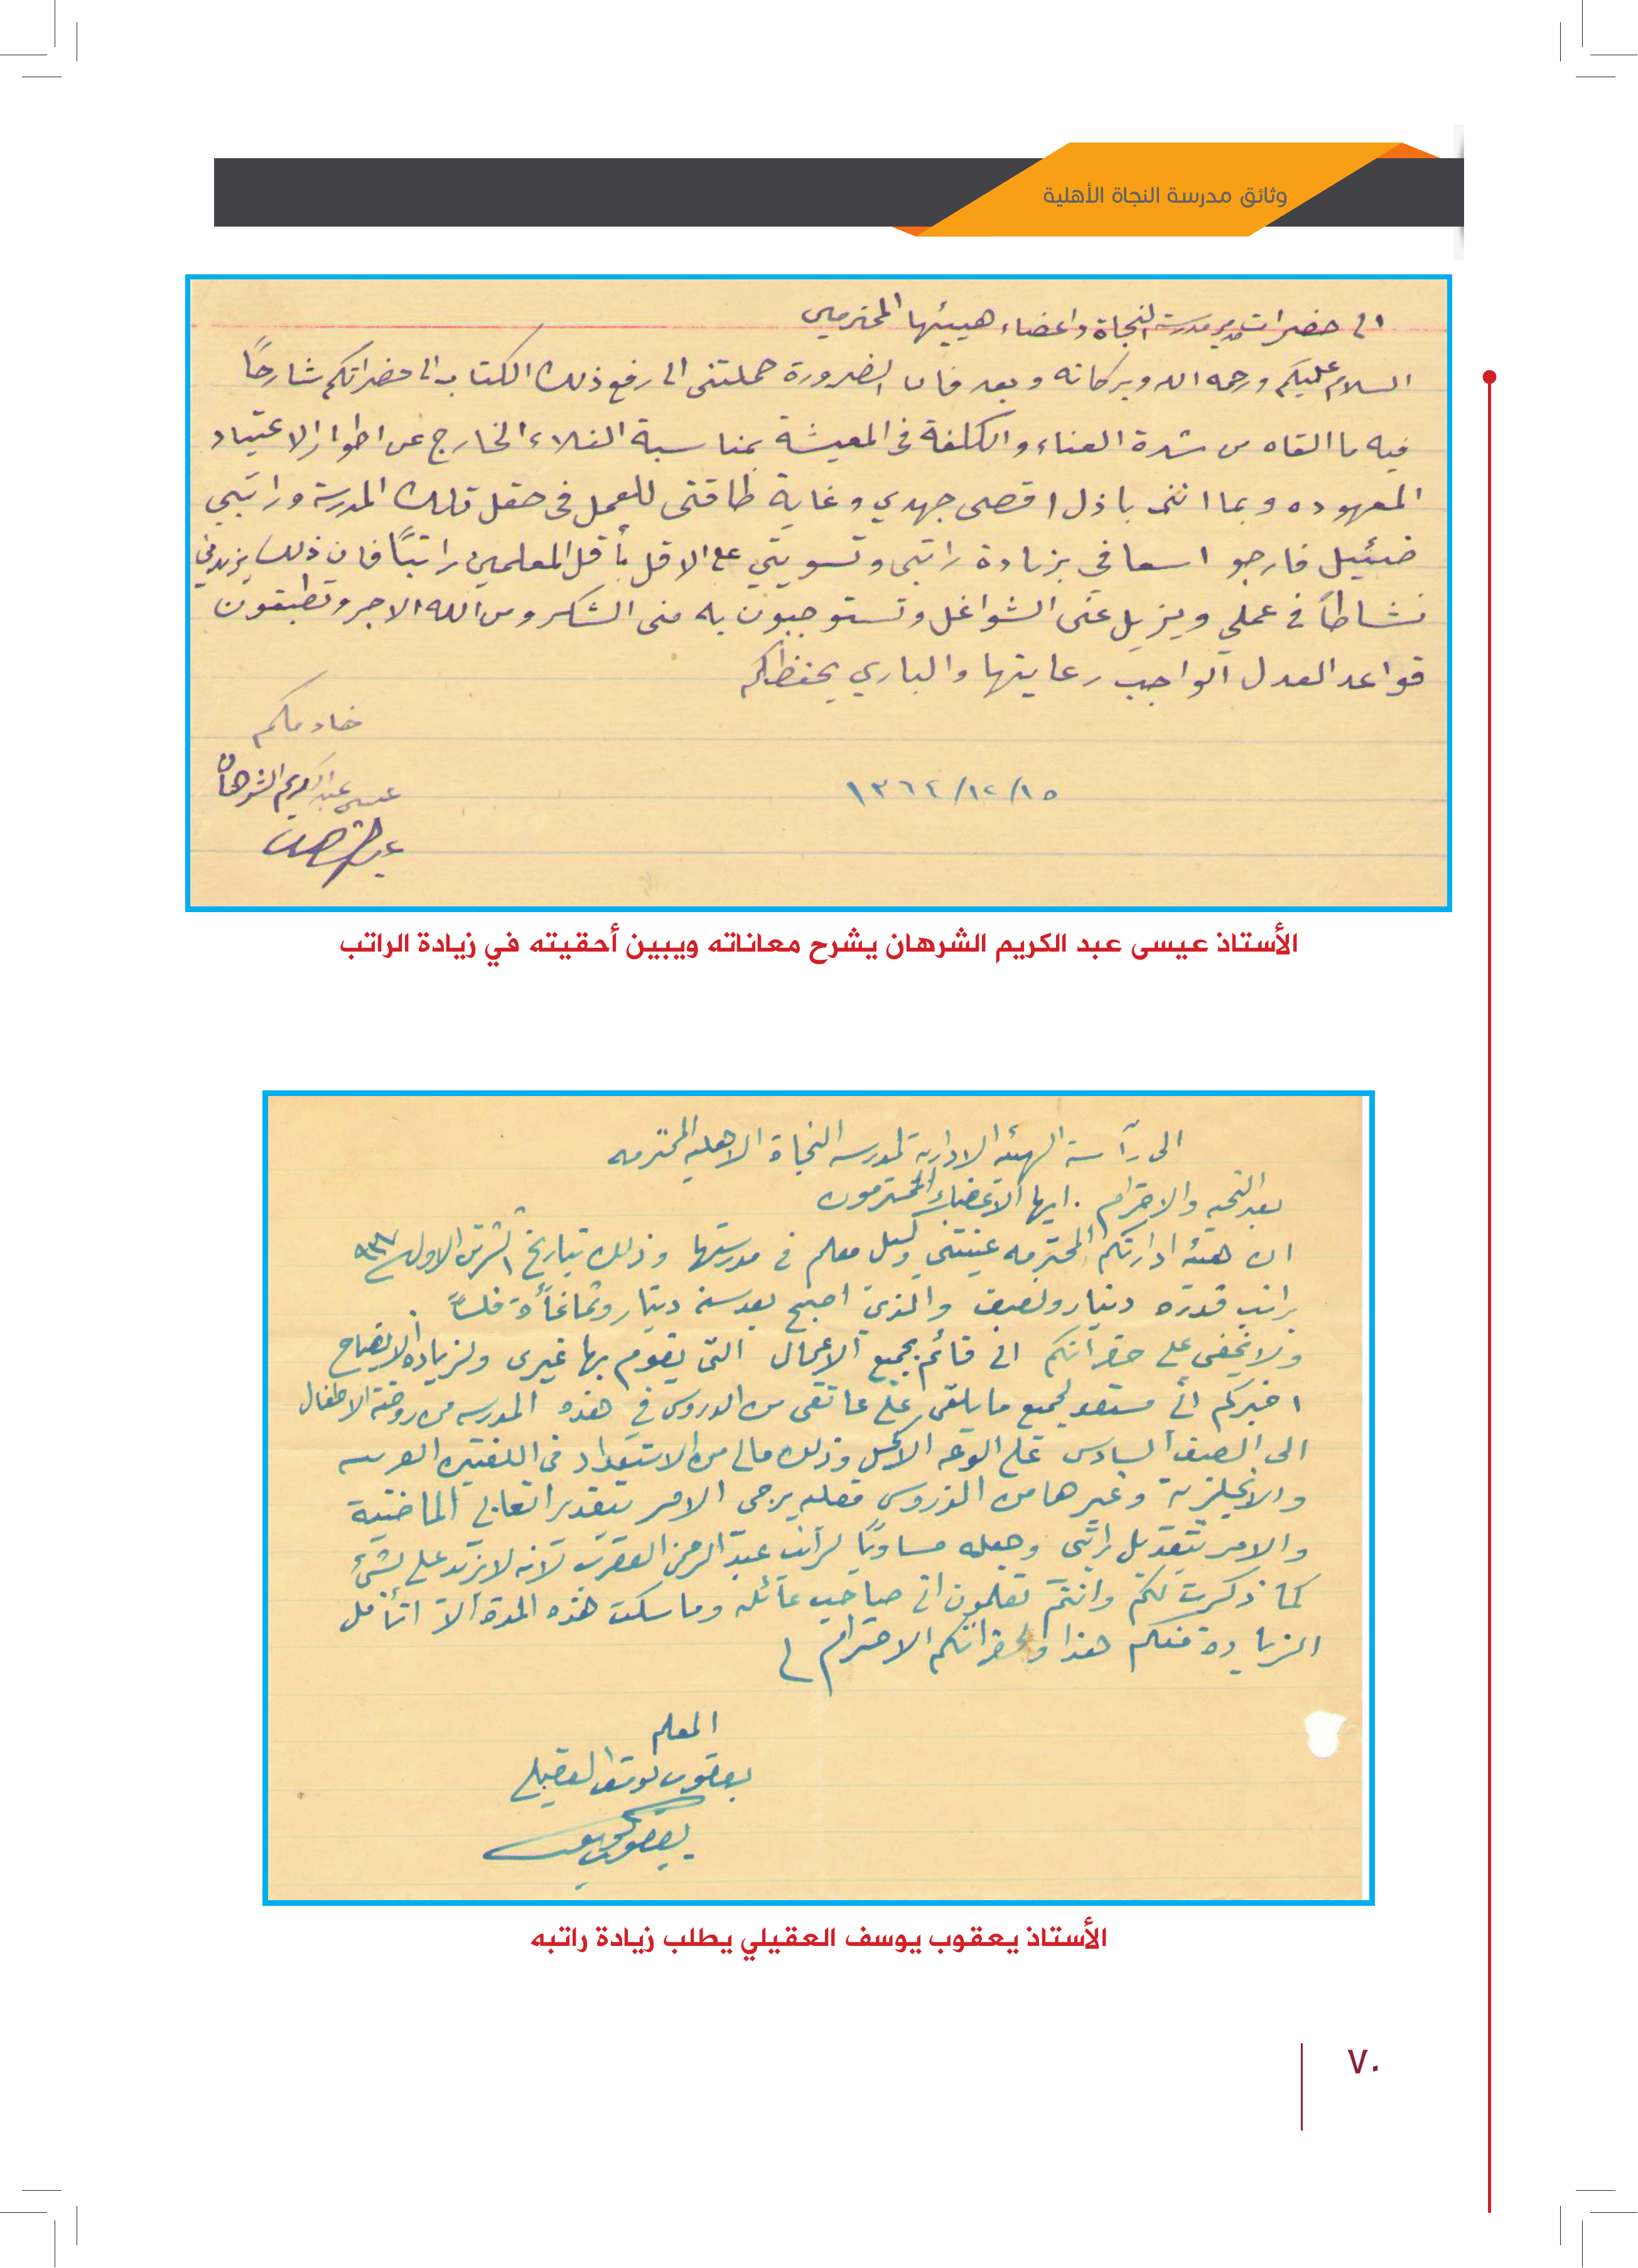 وثائق مدرسة النجاة الأهلية
الى حضرات مدير مدرسة النجاة واعضاء هيئتها المحترمين
السلام عليكم ورحمه الله وبركاته وبعد فان الضرورة حملتنى الى رفع ذلك الكتاب الى حضراتكم شارحاً
فيه ما القاه من شدة العناء والكلفة فى المعيشة بمناسبة الغلاء الخارج عن اطوار الاعتياد
المعهوده وبما اننى باذل اقصى جهدي وغاية طاقتى للعمل فى حقل تلك المدرسة وراتبي
ضئيل فارجو اسعافي بزيادة راتبى وتسويتي على الاقل بأقل المعلمين راتباً فان ذلك يزيدني
نشاطاً في عملي ويزيل عنى الشواغل وتستوجبون به منى الشكر ومن الله الاجر وتطبقون
قواعد العدل الواجب رعايتها والباري يحفظكم
خادمكم
عيسى عبد الكريم الشرهان
١٥/١٢/١٣٦٤
الأستاذ عيسى عبد الكريم الشرهان يشرح معاناته ويبين أحقيته في زيادة الراتب
الى رآسة الهيئه الاداريه لمدرسه النجاة الاهليه المحترمه
بعد التحيه والاحترام . ايها الاعضاء المحترمون
ان هيئه ادارتكم المحترمه عينتني وكيل معلم في مدرستها وذلك بتاريخ ١ تشرين الاول
براتب قدره دينار ونصف والذي اصبح بعد سنه دينار وثمانمأة فلساً .
ولا يخفى على حضراتكم اني قائم بجميع الاعمال التى يقوم بها غيرى ولزيادة الايضاح
اخبركم اني مستعد لجميع ما يلقى على عاتقى من الدروس في هذه المدرسه من روضة الاطفال
الى الصف السادس على الوجه الاكمل وذلك مالى من الاستعداد فى اللغتين العربيه
والانجليزية وغيرها من الدروس فعليه يرجى الامر بتقدير اتعابي الماضية
والامر بتعديل راتبى وجعله مساويًا لراتب عبد الرحمن العقرب لأنه لا يزيد على بشئ
كما ذكرت لكم وانتم تعلمون اني صاحب عائله وما سكت هذه المدة الا اتأمل
الزيادة منكم هذا ولحضراتكم الاحترام
المعلم
يعقوب يوسف العقيلي
الأستاذ يعقوب يوسف العقيلي يطلب زيادة راتبه
٧٠